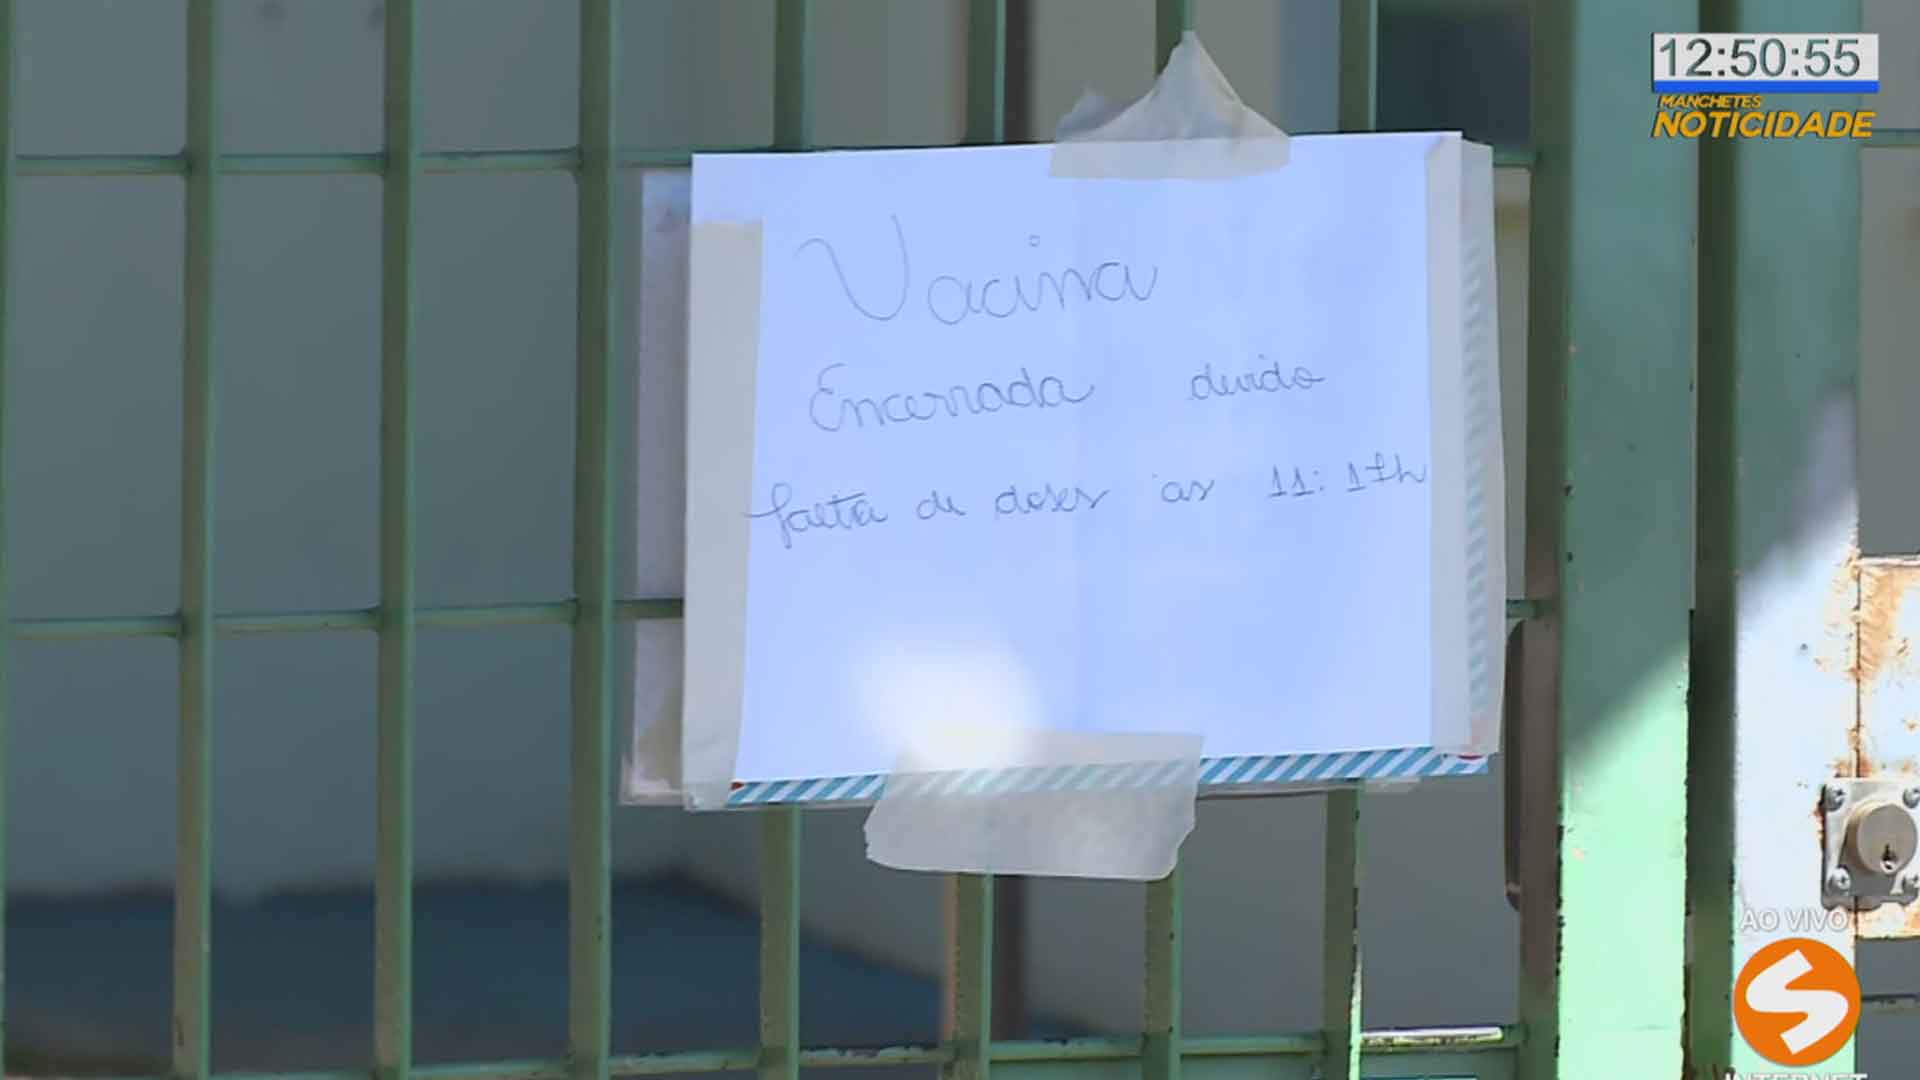 12:50:55
MANCHETES
NOTICIDADE
Vacina
Encerrada devido
falta de doses as 11:17h
AO VIVO
INTERNET